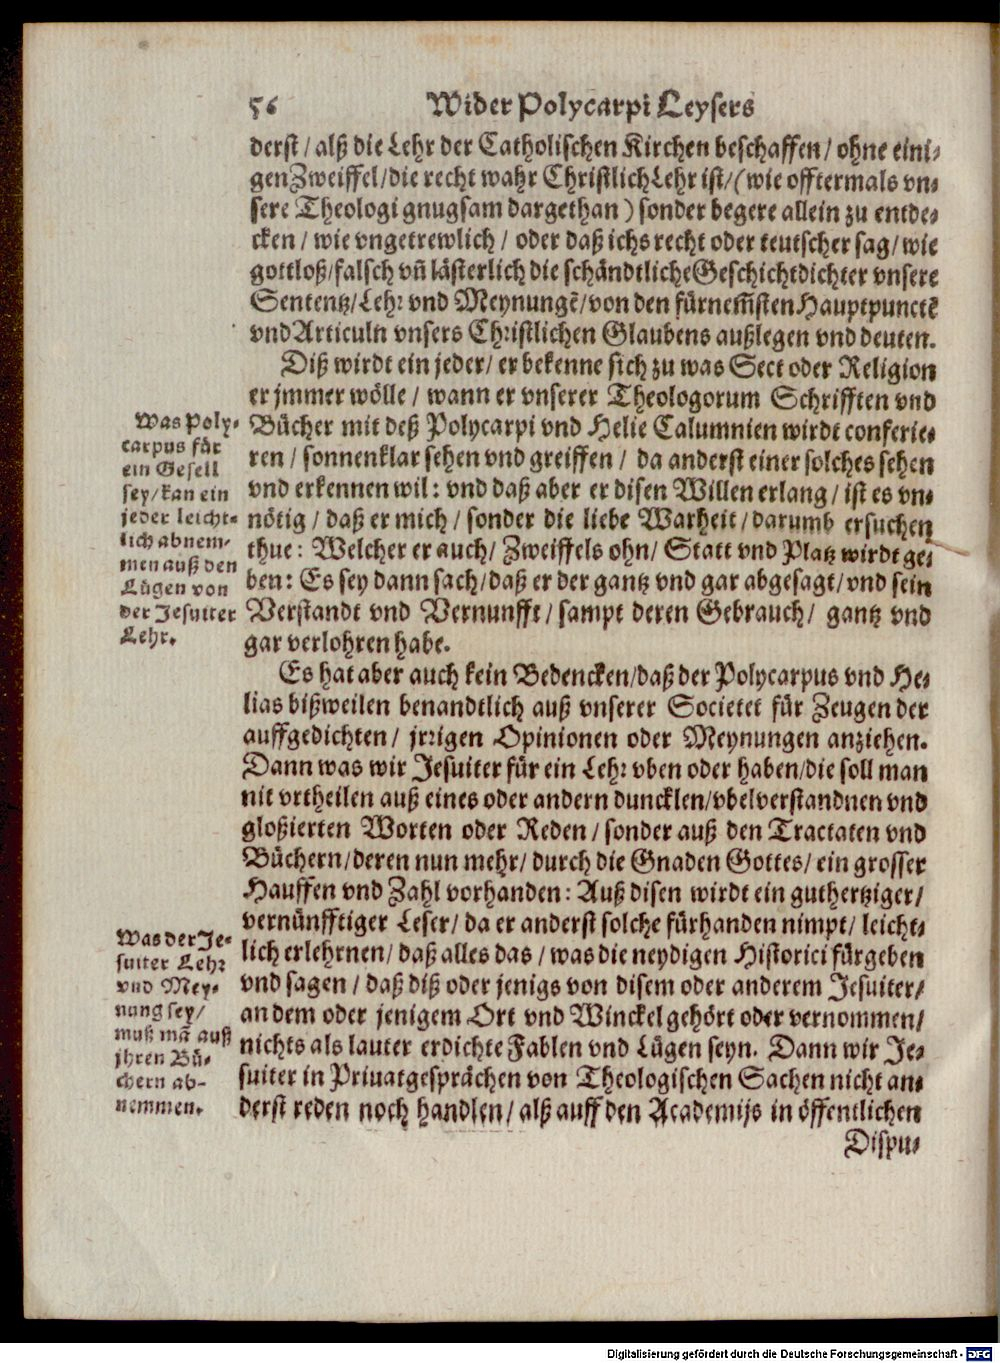 56 Wider Polycarpi Leysers
derst / alß die Lehr der Catholischen Kirchen beschaffen / ohne eini-
gen Zweiffel / die recht wahr Christlich Lehr ist / (wie offtermals vn-
sere Theologi gnugsam dargethan) sonder begere allein zu entde-
cken / wie vngetrewlich / oder daß ichs recht oder teutscher sag / wie
gottloß / falsch vñ lästerlich die schändtliche Geschichtdichter vnsere
Sententz / Lehr vnd Meynungẽ / von den fürnem̃sten Hauptpunctẽ
vnd Articuln vnsers Christlichen Glaubens außlegen vnd deuten.
Diß wirdt ein jeder / er bekenne sich zu was Sect oder Religion
er jmmer wölle / wann er vnserer Theologorum Schrifften vnd
Bücher mit deß Polycarpi vnd Helie Calumnien wirdt conferie-
ren / sonnenklar sehen vnd greiffen / da anderst einer solches sehen
vnd erkennen wil: vnd daß aber er disen Willen erlang / ist es vn-
nötig / daß er mich / sonder die liebe Warheit / darumb ersuchen
thue: Welcher er auch / Zweiffels ohn / Statt vnd Platz wirdt ge-
ben: Es sey dann sach / daß er der gantz vnd gar abgesagt / vnd sein
Verstandt vnd Vernunfft / sampt deren Gebrauch / gantz vnd
gar verlohren habe.
Was Poly-
carpus für
ein Gesell
sey / kan ein
jeder leicht-
lich abnem-
men auß den
Lügen von
der Jesuiter
Lehr.
Es hat aber auch kein Bedencken / daß der Polycarpus vnd He-
lias bißweilen benandtlich auß vnserer Societet für Zeugen der
auffgedichten / jrrigen Opinionen oder Meynungen anziehen.
Dann was wir Jesuiter für ein Lehr vben oder haben / die soll man
nit vrtheilen auß eines oder andern duncklen / vbelverstandnen vnd
gloßierten Worten oder Reden / sonder auß den Tractaten vnd
Büchern / deren nun mehr / durch die Gnaden Gottes / ein grosser
Hauffen vnd Zahl vorhanden: Auß disen wirdt ein guthertziger /
vernünfftiger Leser / da er anderst solche fürhanden nimpt / leicht-
lich erlehrnen / daß alles das / was die neydigen Historici fürgeben
vnd sagen / daß diß oder jenigs von disem oder anderem Jesuiter /
an dem oder jenigem Ort vnd Winckel gehört oder vernommen /
nichts als lauter erdichte Fablen vnd Lügen seyn. Dann wir Je-
suiter in Priuatgesprächen von Theologischen Sachen nicht an-
derst reden noch handlen / alß auff den Academijs in öffentlichen
Was der Je-
suiter Lehr
vnd Mey-
nung sey /
muß mã auß
jhren Bü-
chern ab-
nemmen.
Dispu-
Digitalisierung gefördert durch die Deutsche Forschungsgemeinschaft - DFG